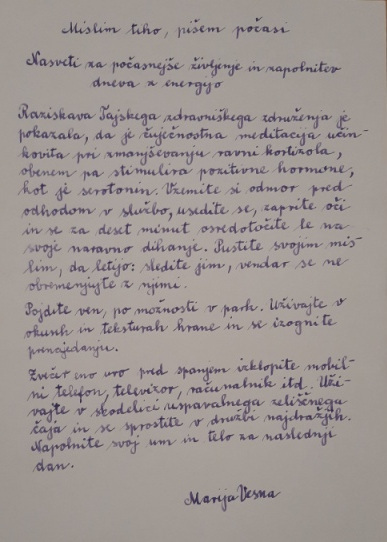 Mislim tiho, pišem počasi
Nasveti za počasnejše življenje in zapolnitev
dneva z energijo
Raziskava Tajskega zdravniškega združenja je
pokazala, da je čuječnostna meditacija učin-
kovita pri zmanjševanju ravni kortizola,
obenem pa stimulira pozitivne hormone,
kot je serotonin. Vzemite si odmor pred
odhodom v službo, usedite se, zaprite oči
in se za deset minut osredotočite le na
svoje naravno dihanje. Pustite svojim mis-
lim, da letijo: sledite jim, vendar se ne
obremenjujte z njimi.
Pojdite ven, po možnosti v park. Uživajte v
okusih in teksturah hrane in se izognite
prenajedanju.
Zvečer eno uro pred spanjem izklopite mobil-
ni telefon, televizor, računalnik itd. Uži-
vajte v skodelici uspavalnega zeliščnega
čaja in se sprostite v družbi najdražjih.
Napolnite svoj um in telo za naslednji
dan.
Marija Vesna